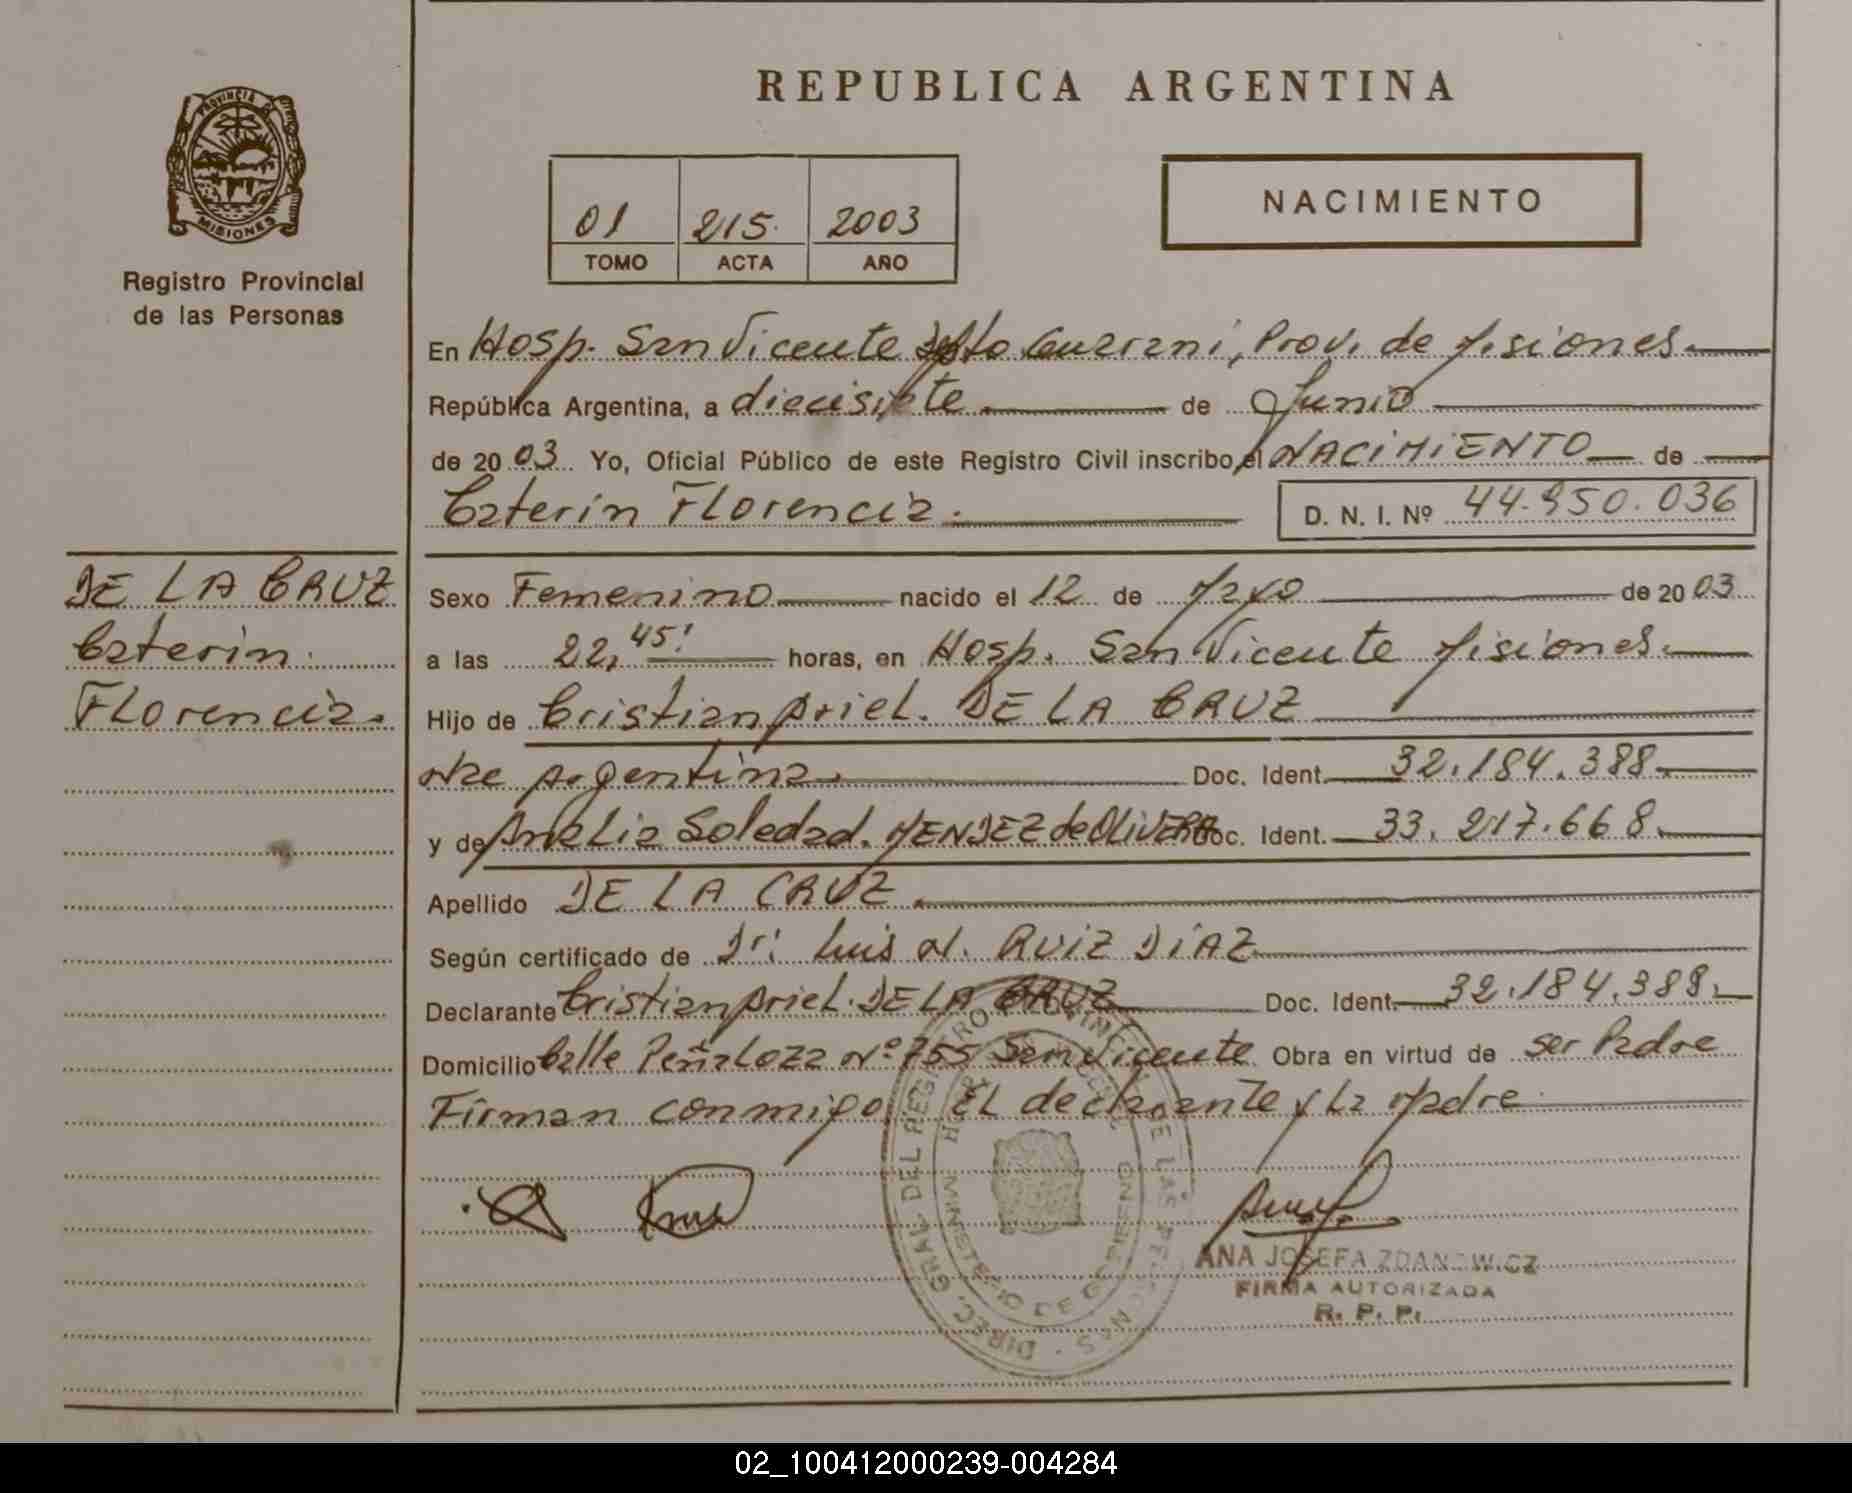 REPUBLICA ARGENTINA
PROVINCIA DE
MISIONES
Registro Provincial
de las Personas
01 215. 2003
TOMO ACTA AÑO
NACIMIENTO
En Hosp. San Vicente Dpto Guarani, Prov. de Misiones.
República Argentina, a diecisiete de Junio
de 2003 Yo, Oficial Público de este Registro Civil inscribo, el NACIMIENTO de
Caterin Florencia. D. N. I. Nº 44.950.036
DE LA CRUZ
Caterin
Florencia.
Sexo Femenino nacido el 12 de Mayo de 2003
a las 22,45! horas, en Hosp. San Vicente Misiones.
Hijo de Cristian Ariel. DE LA CRUZ
Nac Argentina. Doc. Ident. 32.184.388
y de Amelia Soledad. MENDEZ de OLIVERA Doc. Ident. 33.217.668.
Apellido DE LA CRUZ.
Según certificado de Dr: Luis N. RUIZ DIAZ
Declarante Cristian Ariel. DE LA CRUZ Doc. Ident. 32.184.388.
Domicilio Calle Peñaloza Nº 755 San Vicente Obra en virtud de ser Padre
Firman conmigo El declarante y La Madre
DIREC. GRAL. DEL REGISTRO PROVINCIAL DE LAS PERSONAS
MINISTERIO DE GOBIERNO
ANA JOSEFA ZDANOWICZ
FIRMA AUTORIZADA
R. P. P.
02_100412000239-004284